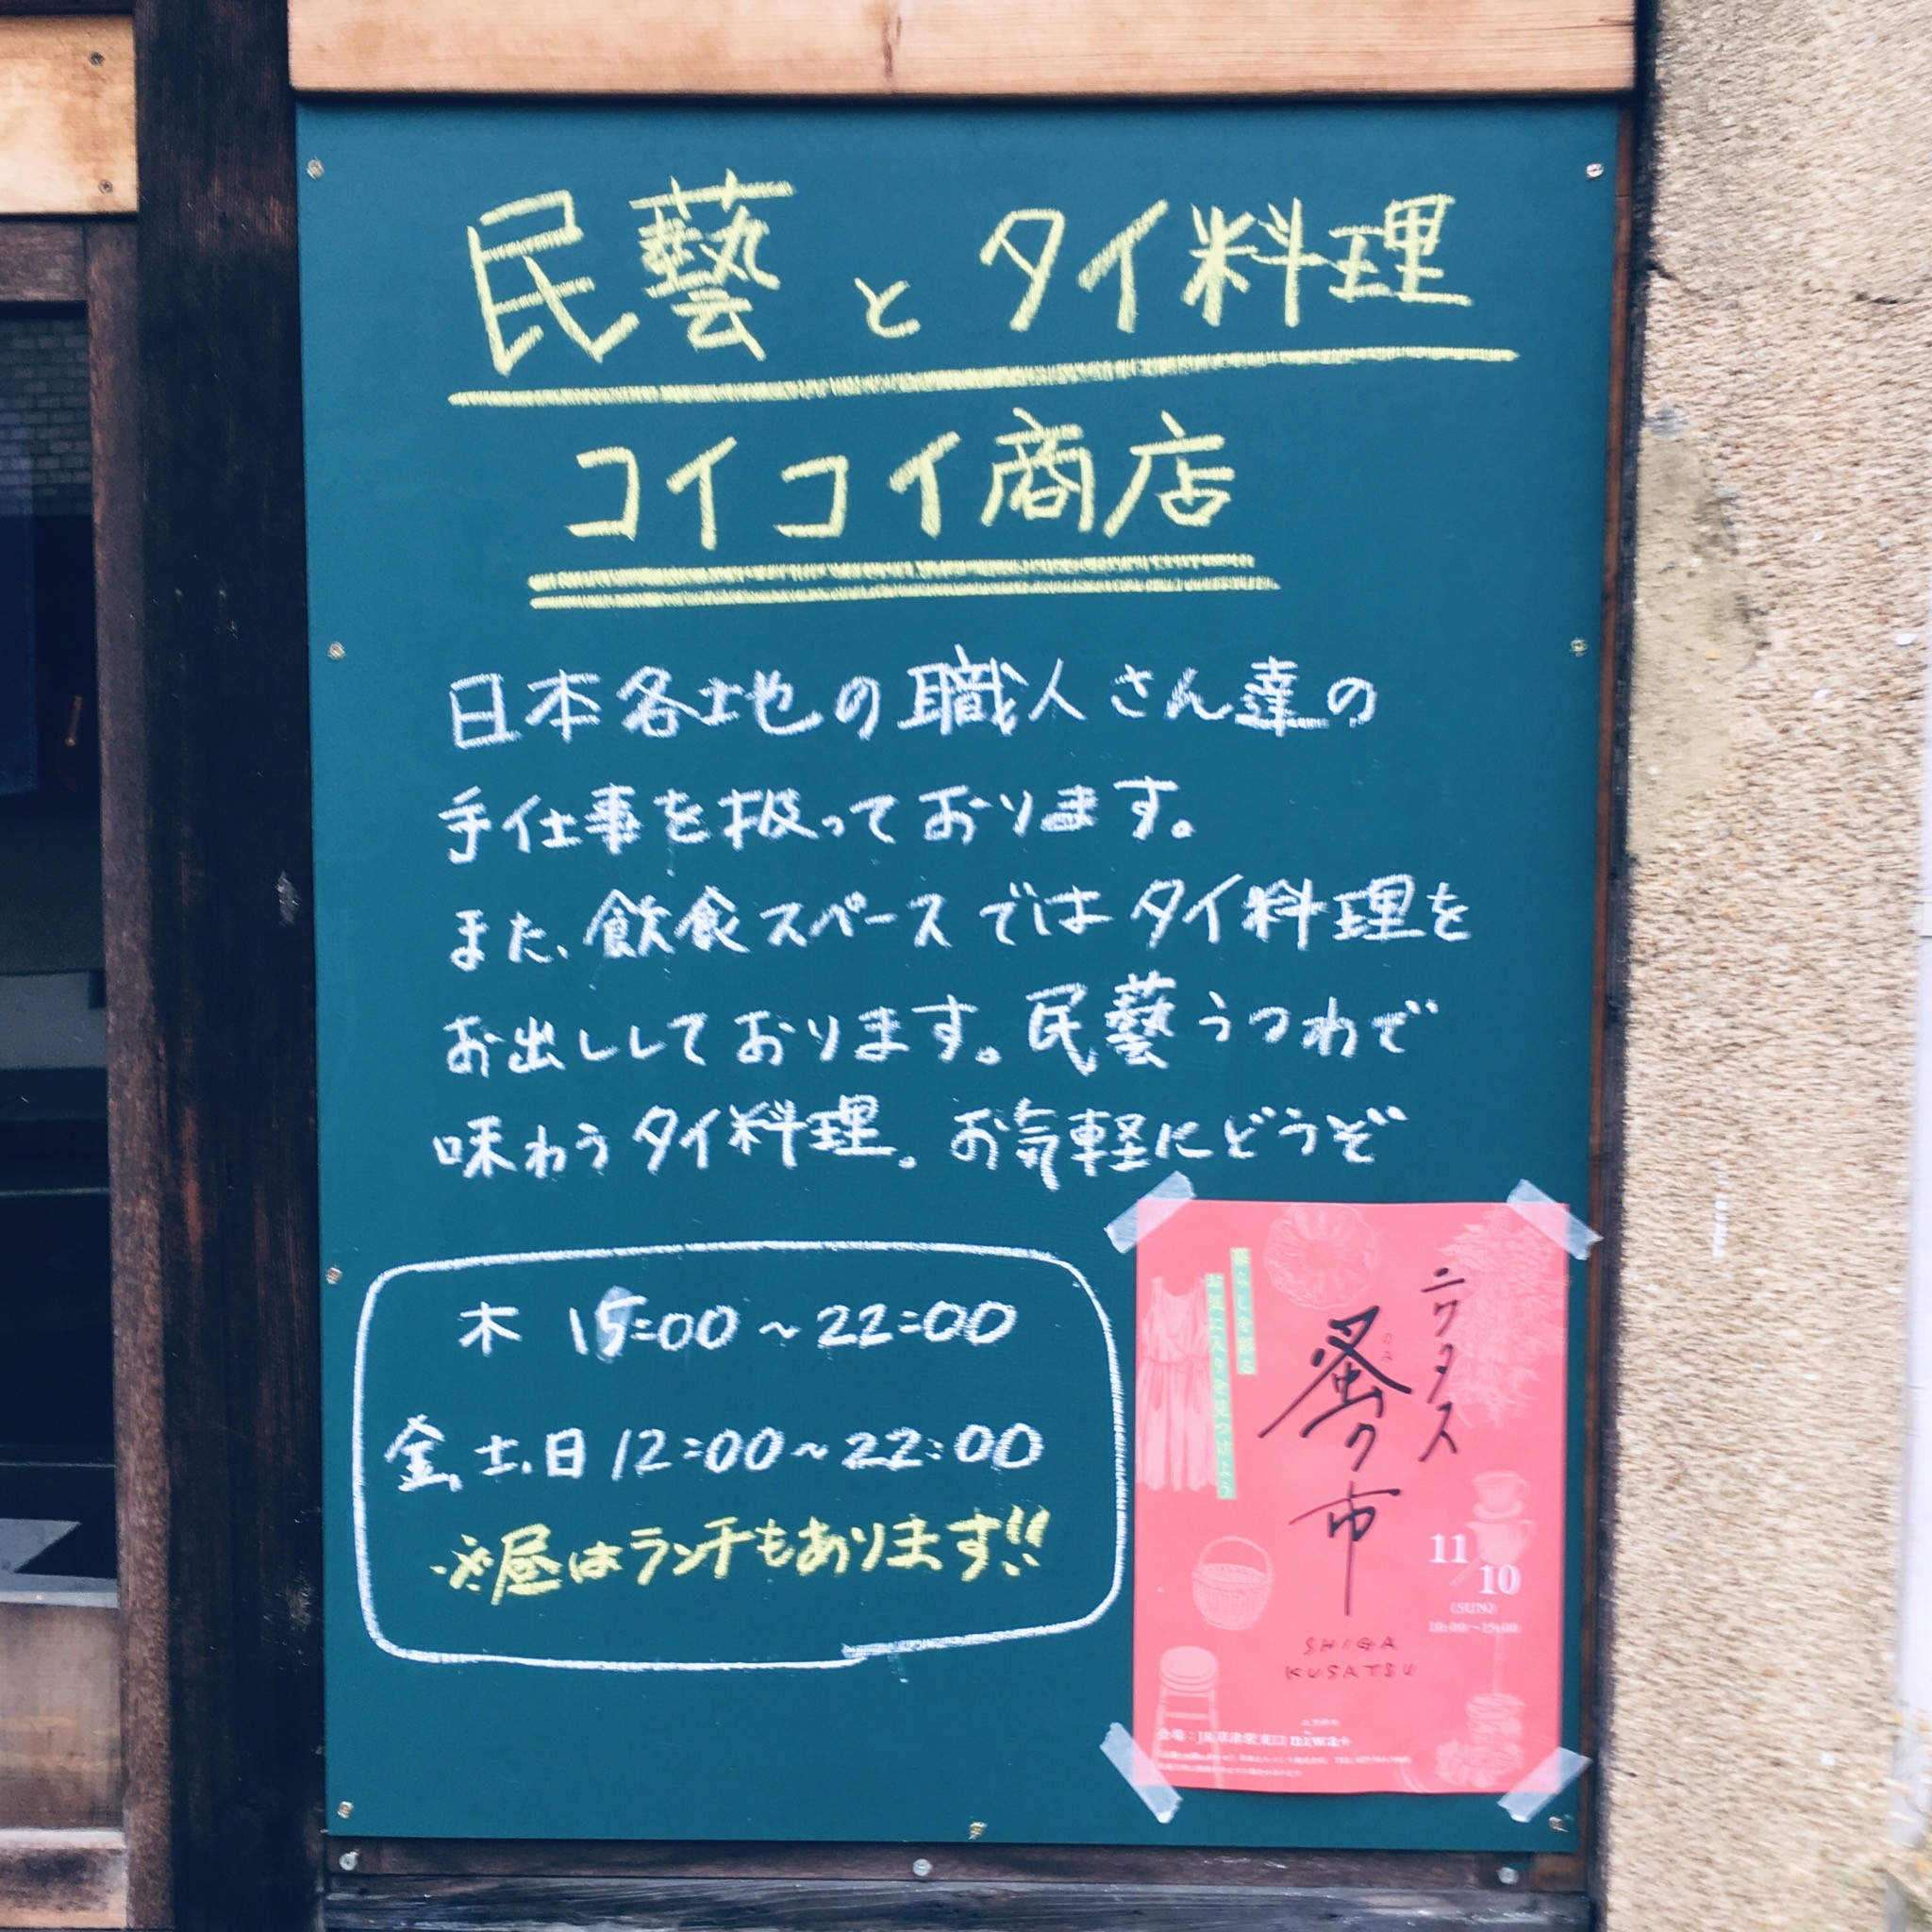 民藝とタイ料理
コイコイ商店
日本各地の職人さん達の
手仕事を扱っております。
また、飲食スペースではタイ料理を
お出ししております。民藝うつわで
味わうタイ料理。お気軽にどうぞ
木 15:00~22:00
金、土、日 12:00~22:00
※昼はランチもあります!!
ニワタス
蚤ノ市
のみ
暮らしを彩る
お気に入りを見つけよう
11/10
(SUN)
10:00~15:00
SHIGA
KUSATSU
会場:JR草津駅東口 niwa+